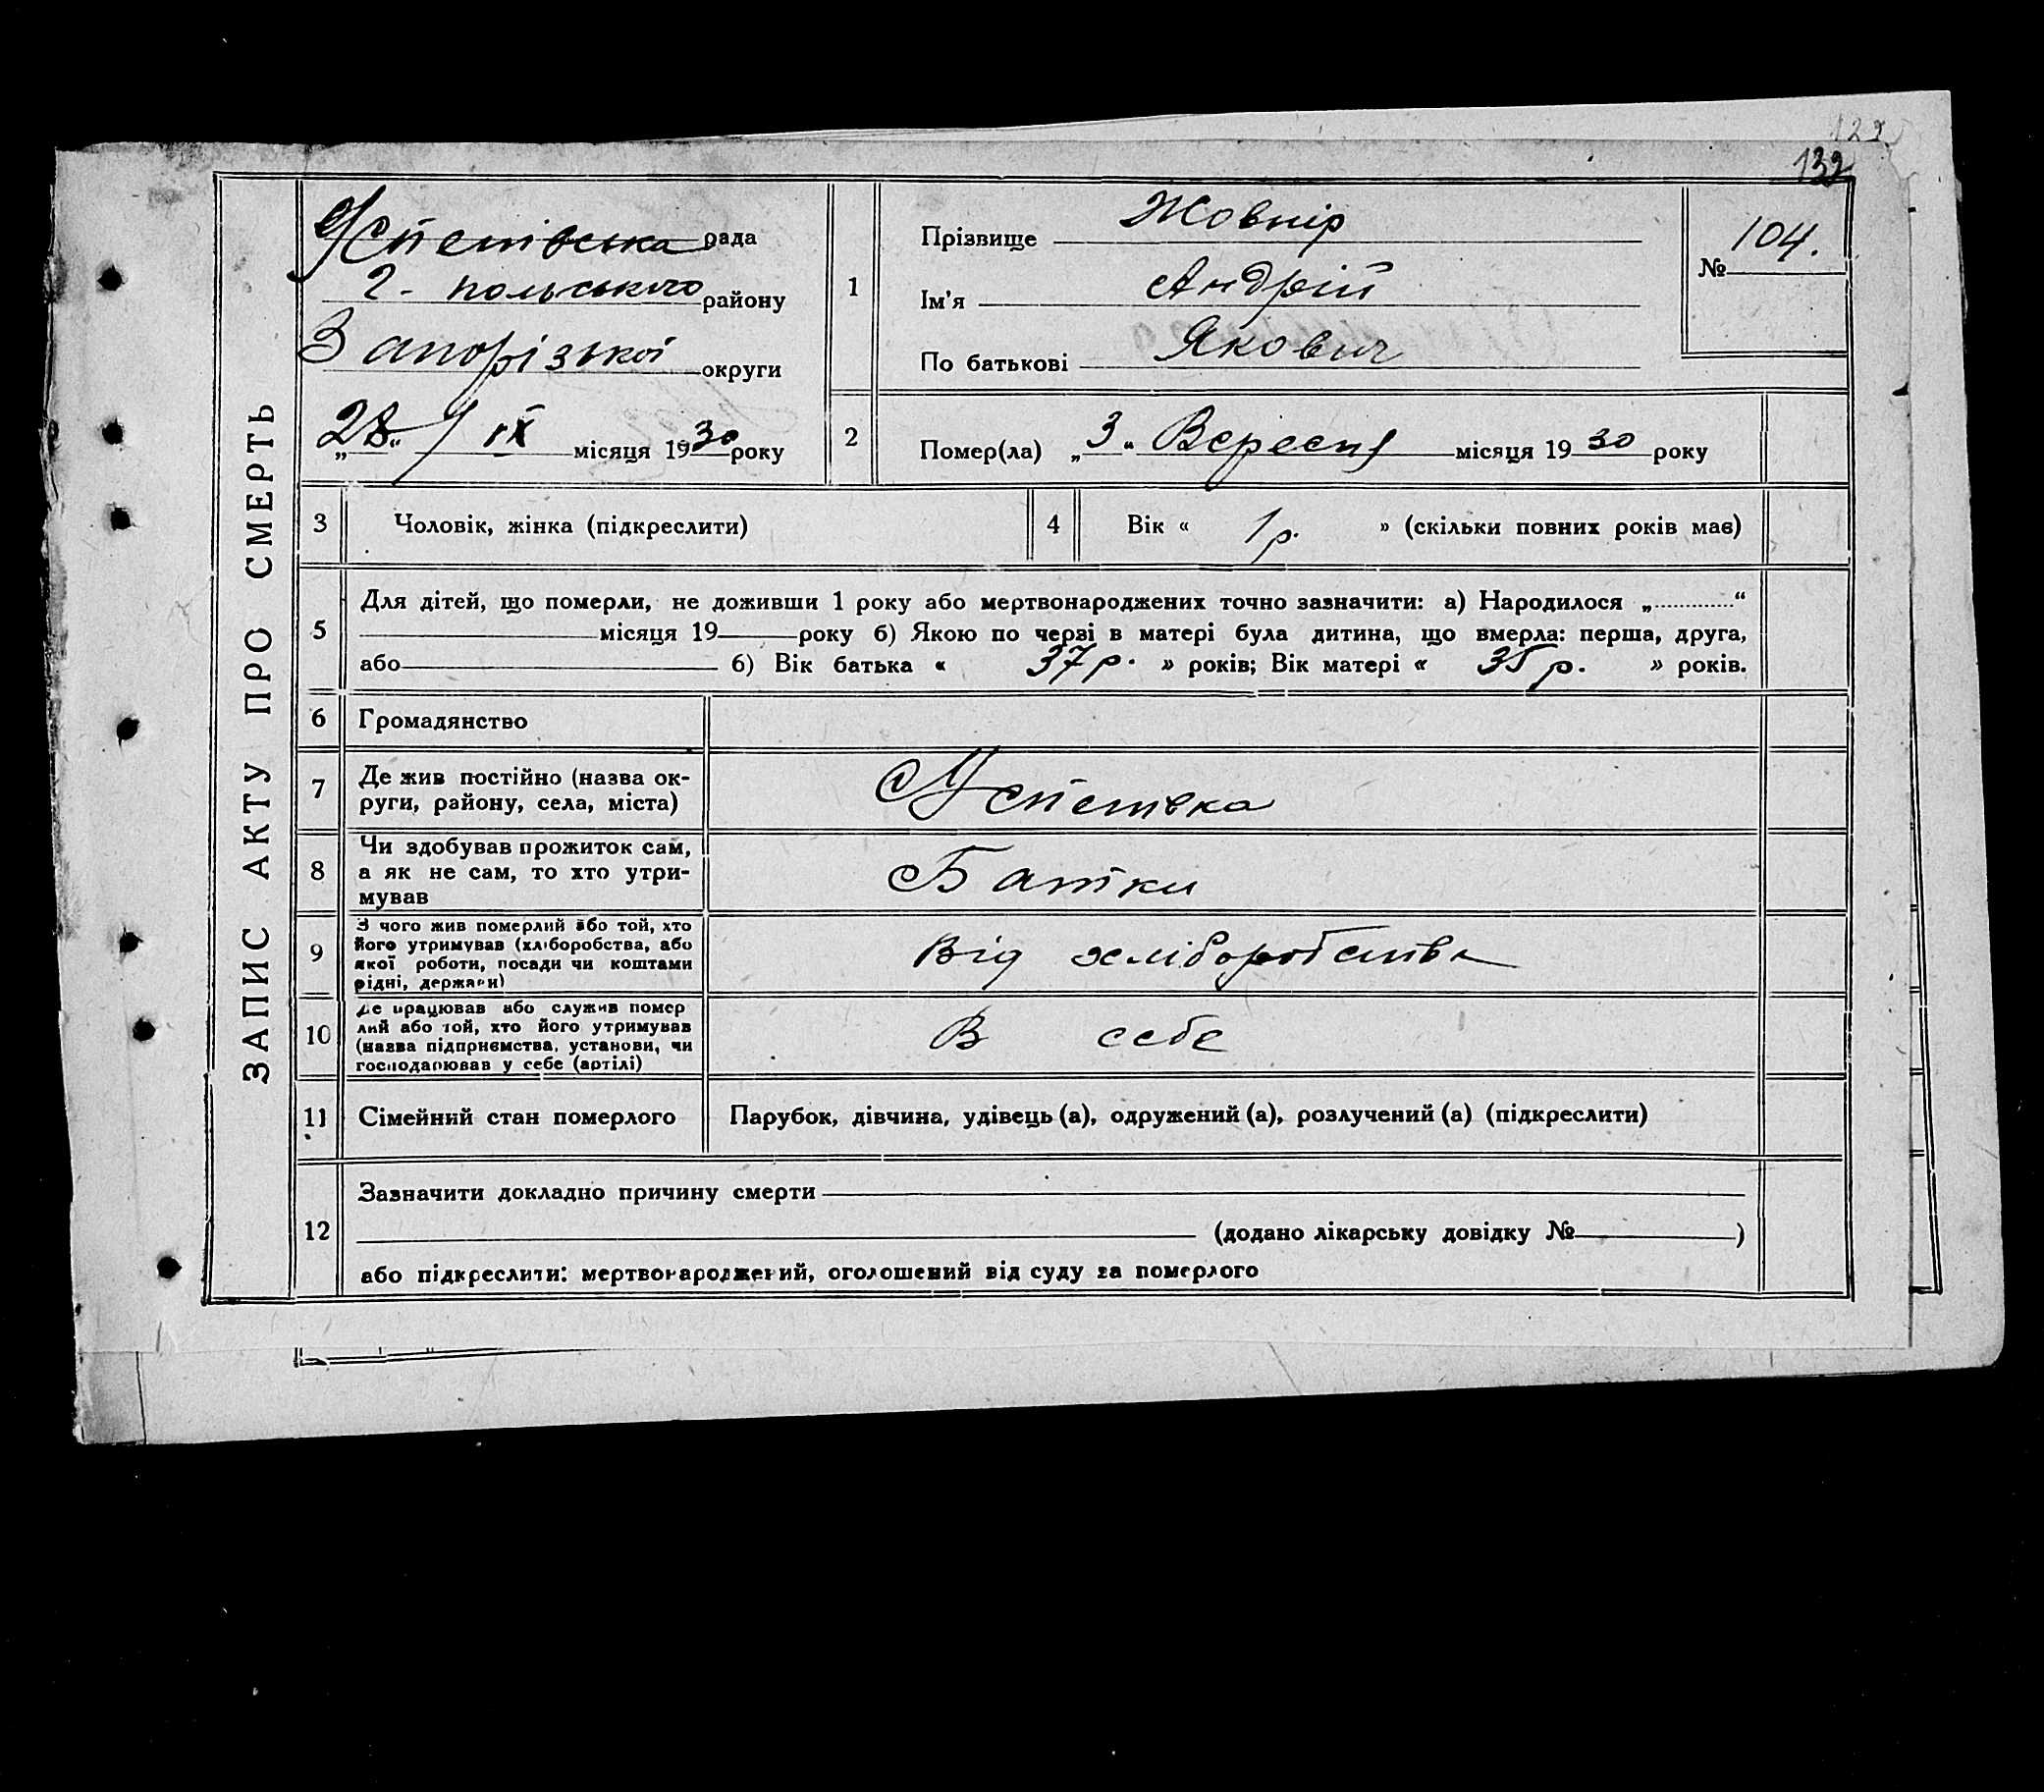 132
ЗАПИС АКТУ ПРО СМЕРТЬ
Успенівська рада
Г-польського району
Запорізької округи
„28“ / IX місяця 1930 року
1
Прізвище Жовнір
Ім'я Андрій
По батькові Якович
№ 104.
2
Помер(ла) „3“ Вересня місяця 1930 року
3 Чоловік, жінка (підкреслити)
4 Вік « 1 р. » (скільки повних років має)
5
Для дітей, що померли, не доживши 1 року або мертвонароджених точно зазначити: а) Народилося „............“
місяця 19 року б) Якою по черзі в матері була дитина, що вмерла: перша, друга,
або б) Вік батька « 37 р. » років; Вік матері « 35 р. » років.
6 Громадянство
7 Де жив постійно (назва ок-
руги, району, села, міста)
Успенівка
8 Чи здобував прожиток сам,
а як не сам, то хто утри-
мував
Батки
9 З чого жив померлий або той, хто
його утримував (хліборобства, або
якої роботи, посади чи коштами
рідні, держави)
Від хліборобства
10 Де працював або служив помер
лий або той, хто його утримував
(назва підприємства, установи, чи
господарював у себе (артілі)
В себе
11 Сімейний стан померлого
Парубок, дівчина, удівець (а), одружений (а), розлучений (а) (підкреслити)
12
Зазначити докладно причину смерти
(додано лікарську довідку № )
або підкреслити: мертвонароджений, оголошений від суду за померлого